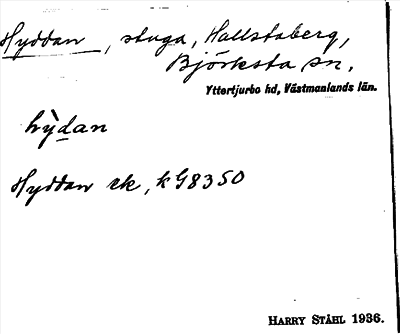 Hyddan, stuga, Hallstaberg,
Björksta sn.
Yttertjurbo hd, Västmanlands län.
hỳdan
Hyddan ek, k G8350
HARRY STÅHL 1936.